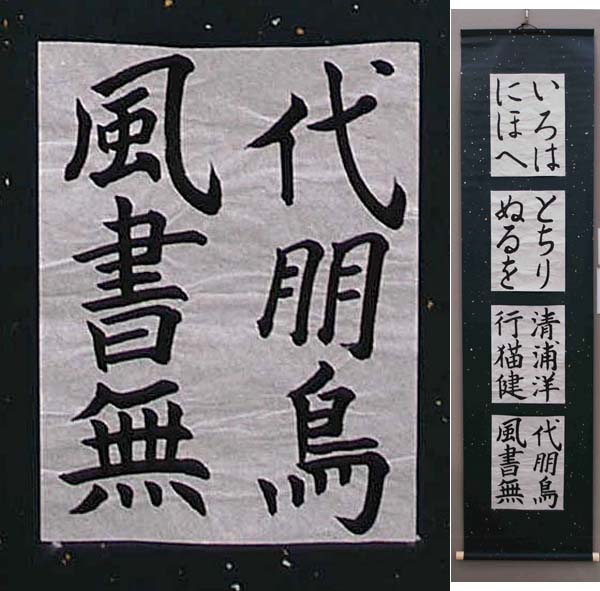 代朋鳥
風書無
いろは
にほへ
とちり
ぬるを
清浦洋
行猫健
代朋鳥
風書無